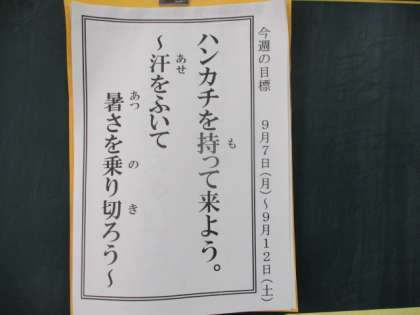 今週の目標　９月７日（月）～９月１２日（土）
ハンカチを持って来よう。
～汗をふいて
暑さを乗り切ろう～